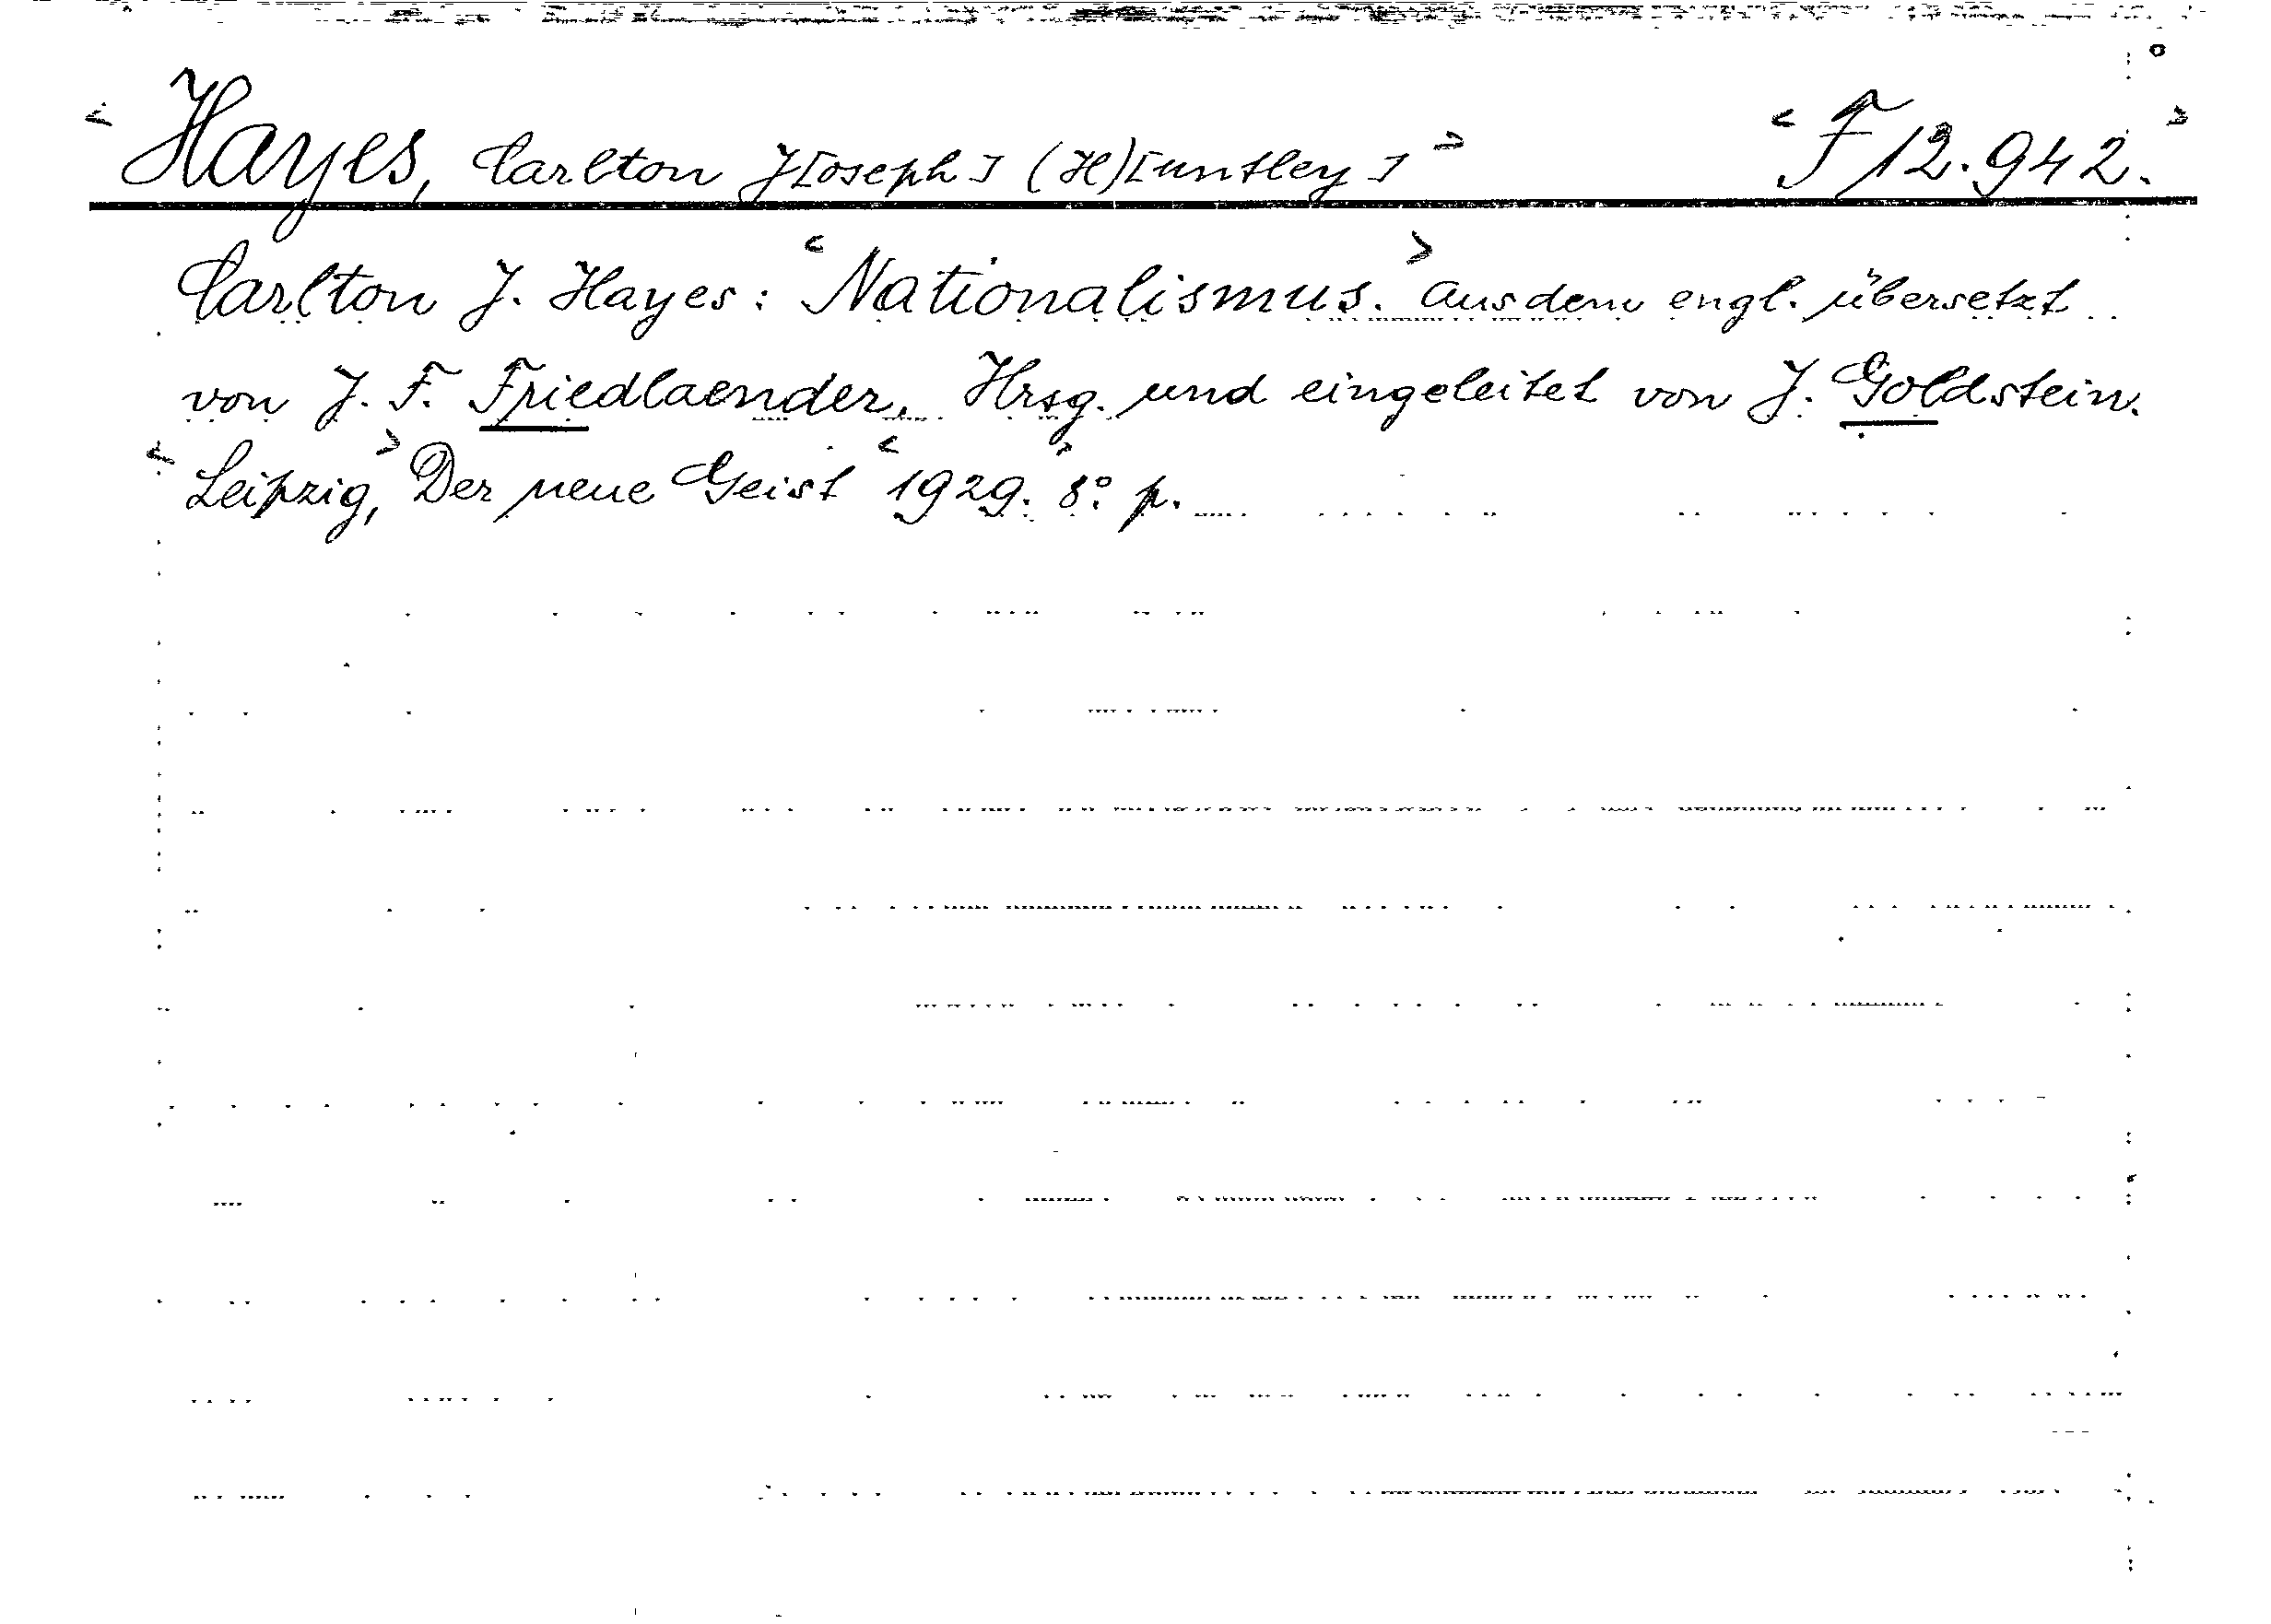 < Hayes, Carlton J[oseph] (H)[untley] > < F 12.942. >
Carlton J. Hayes: < Nationalismus. > Aus dem engl. übersetzt
von J. F. Friedlaender. Hrsg. und eingeleitet von J. Goldstein.
< Leipzig, > Der neue Geist < 1929. > 8° p.